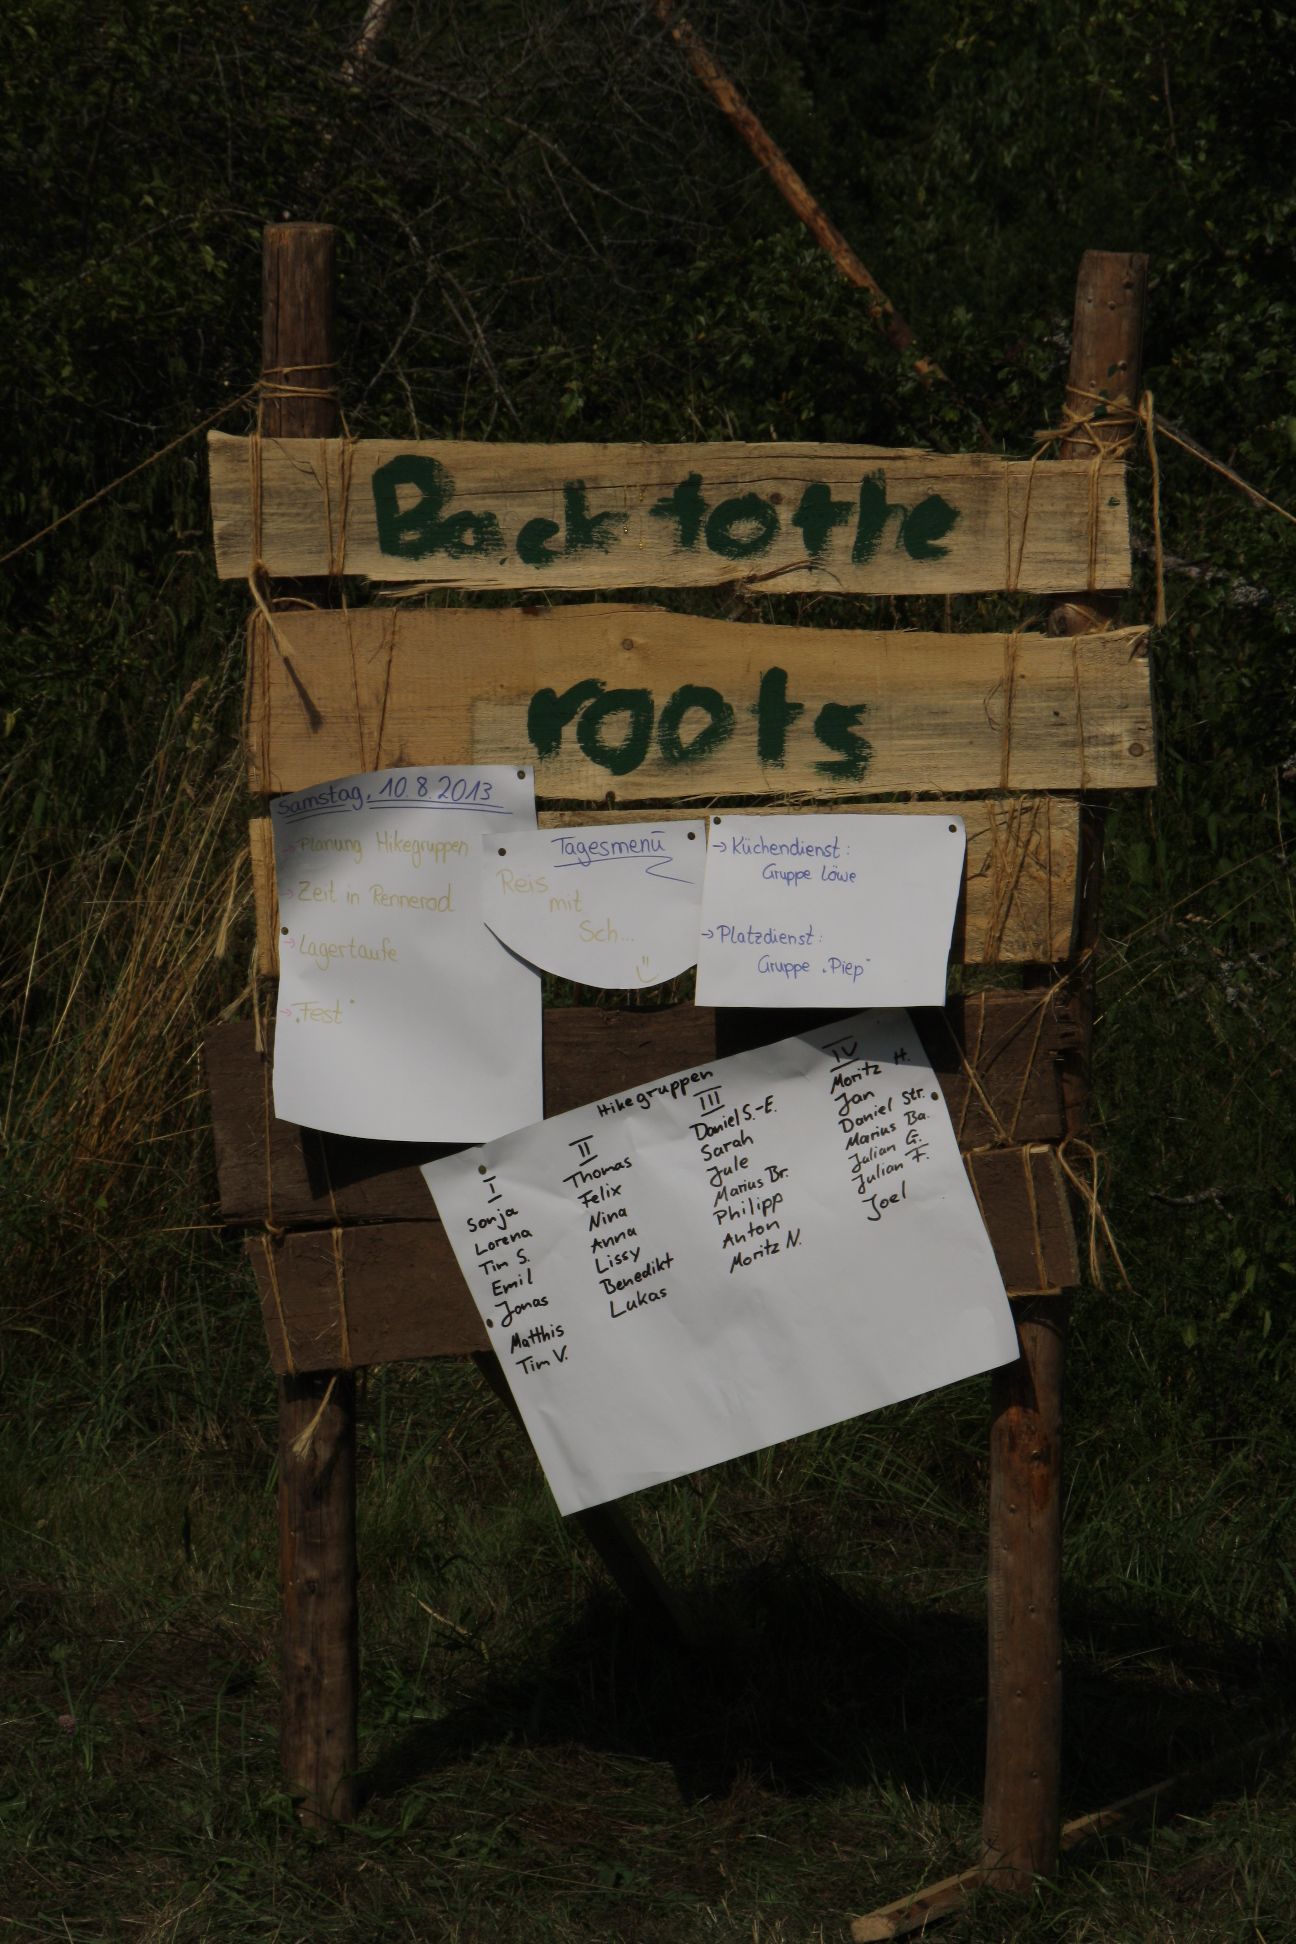 Back to the
roots
Samstag, 10.8.2013
→ Planung Hikegruppen
→ Zeit in Rennerod
→ Lagertaufe
→ "Fest"
Tagesmenü
Reis
mit
Sch...
→ Küchendienst:
Gruppe Löwe
→ Platzdienst:
Gruppe "Piep"
Hikegruppen
I
Sonja
Lorena
Tim S.
Emil
Jonas
Matthis
Tim V.
II
Thomas
Felix
Nina
Anna
Lissy
Benedikt
Lukas
III
Daniel S.-E.
Sarah
Jule
Marius Br.
Philipp
Anton
Moritz N.
IV
Moritz H.
Jan
Daniel Str.
Marius Ba.
Julian G.
Julian F.
Joel